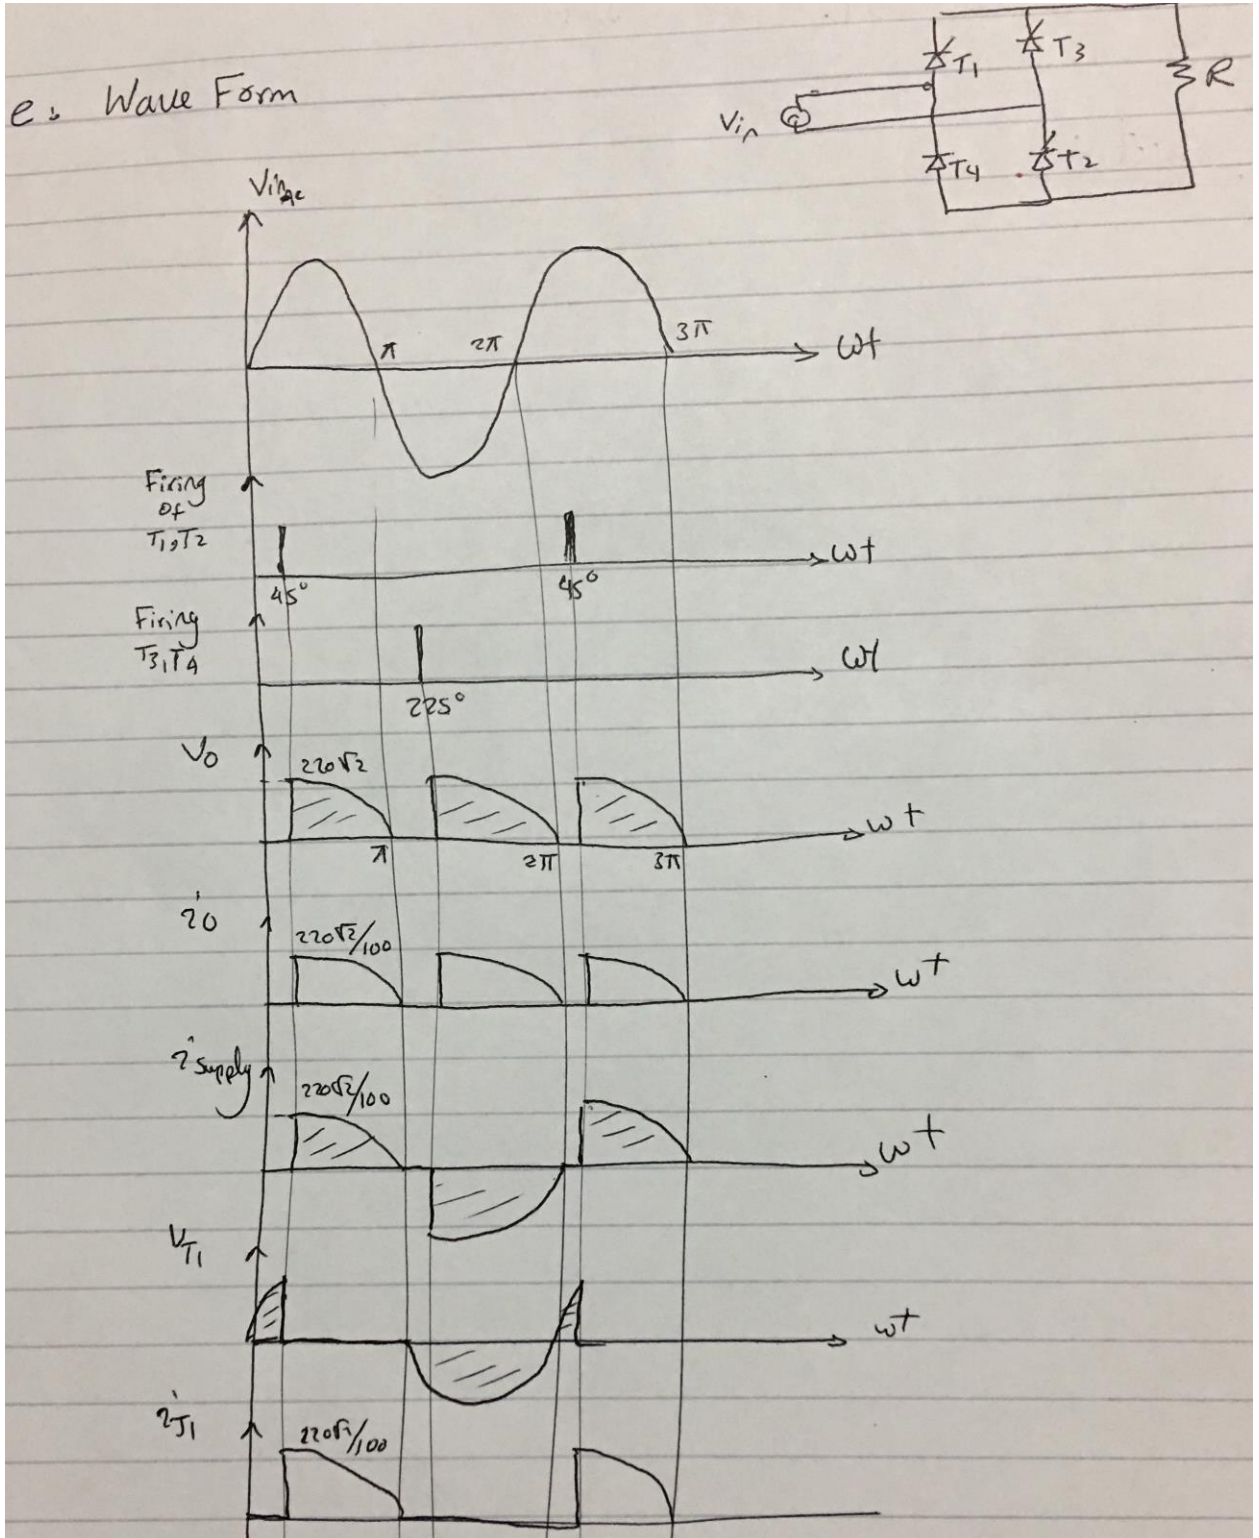 e. Wave Form
T1
T3
R
Vin
T4
T2
Vin ac
π
2π
3π
ωt
Firing
of
T1, T2
45°
45°
ωt
Firing
T3, T4
225°
ωt
Vo
220√2
π
2π
3π
ωt
io
220√2/100
ωt
i supply
220√2/100
ωt
VT1
ωt
iT1
220√2/100